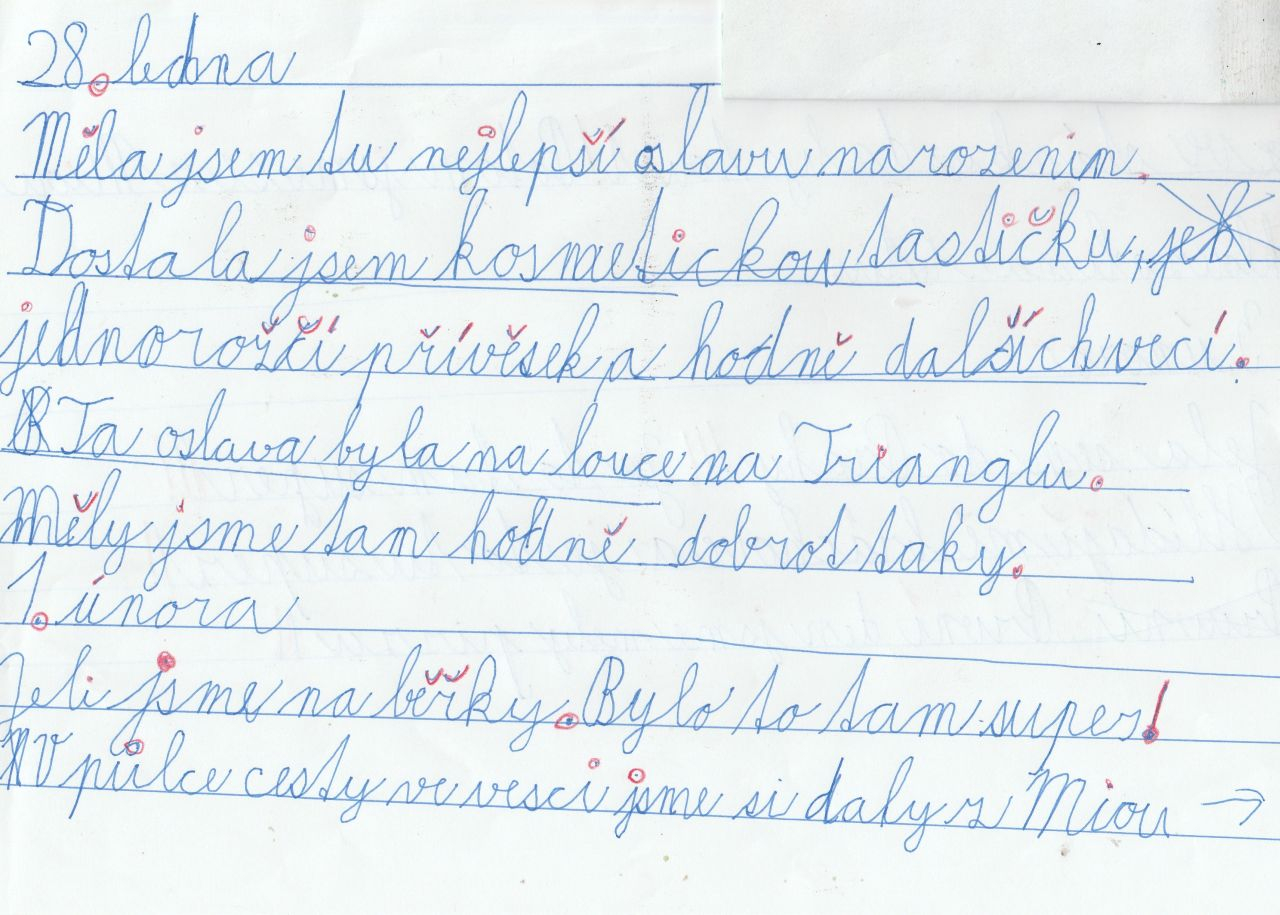 28. ledna
Měla jsem tu nejlepší oslavu narozenin.
Dostala jsem kosmetickou tastičku,
jednorožčí přívěsek a hodně dalších vecí.
Ta oslava byla na louce na Trianglu.
Měly jsme tam hodně dobrot taky.
1. února
Jeli jsme na běřky. Bylo to tam super!
V půlce cesty ve vesci jsme si daly z Miou →